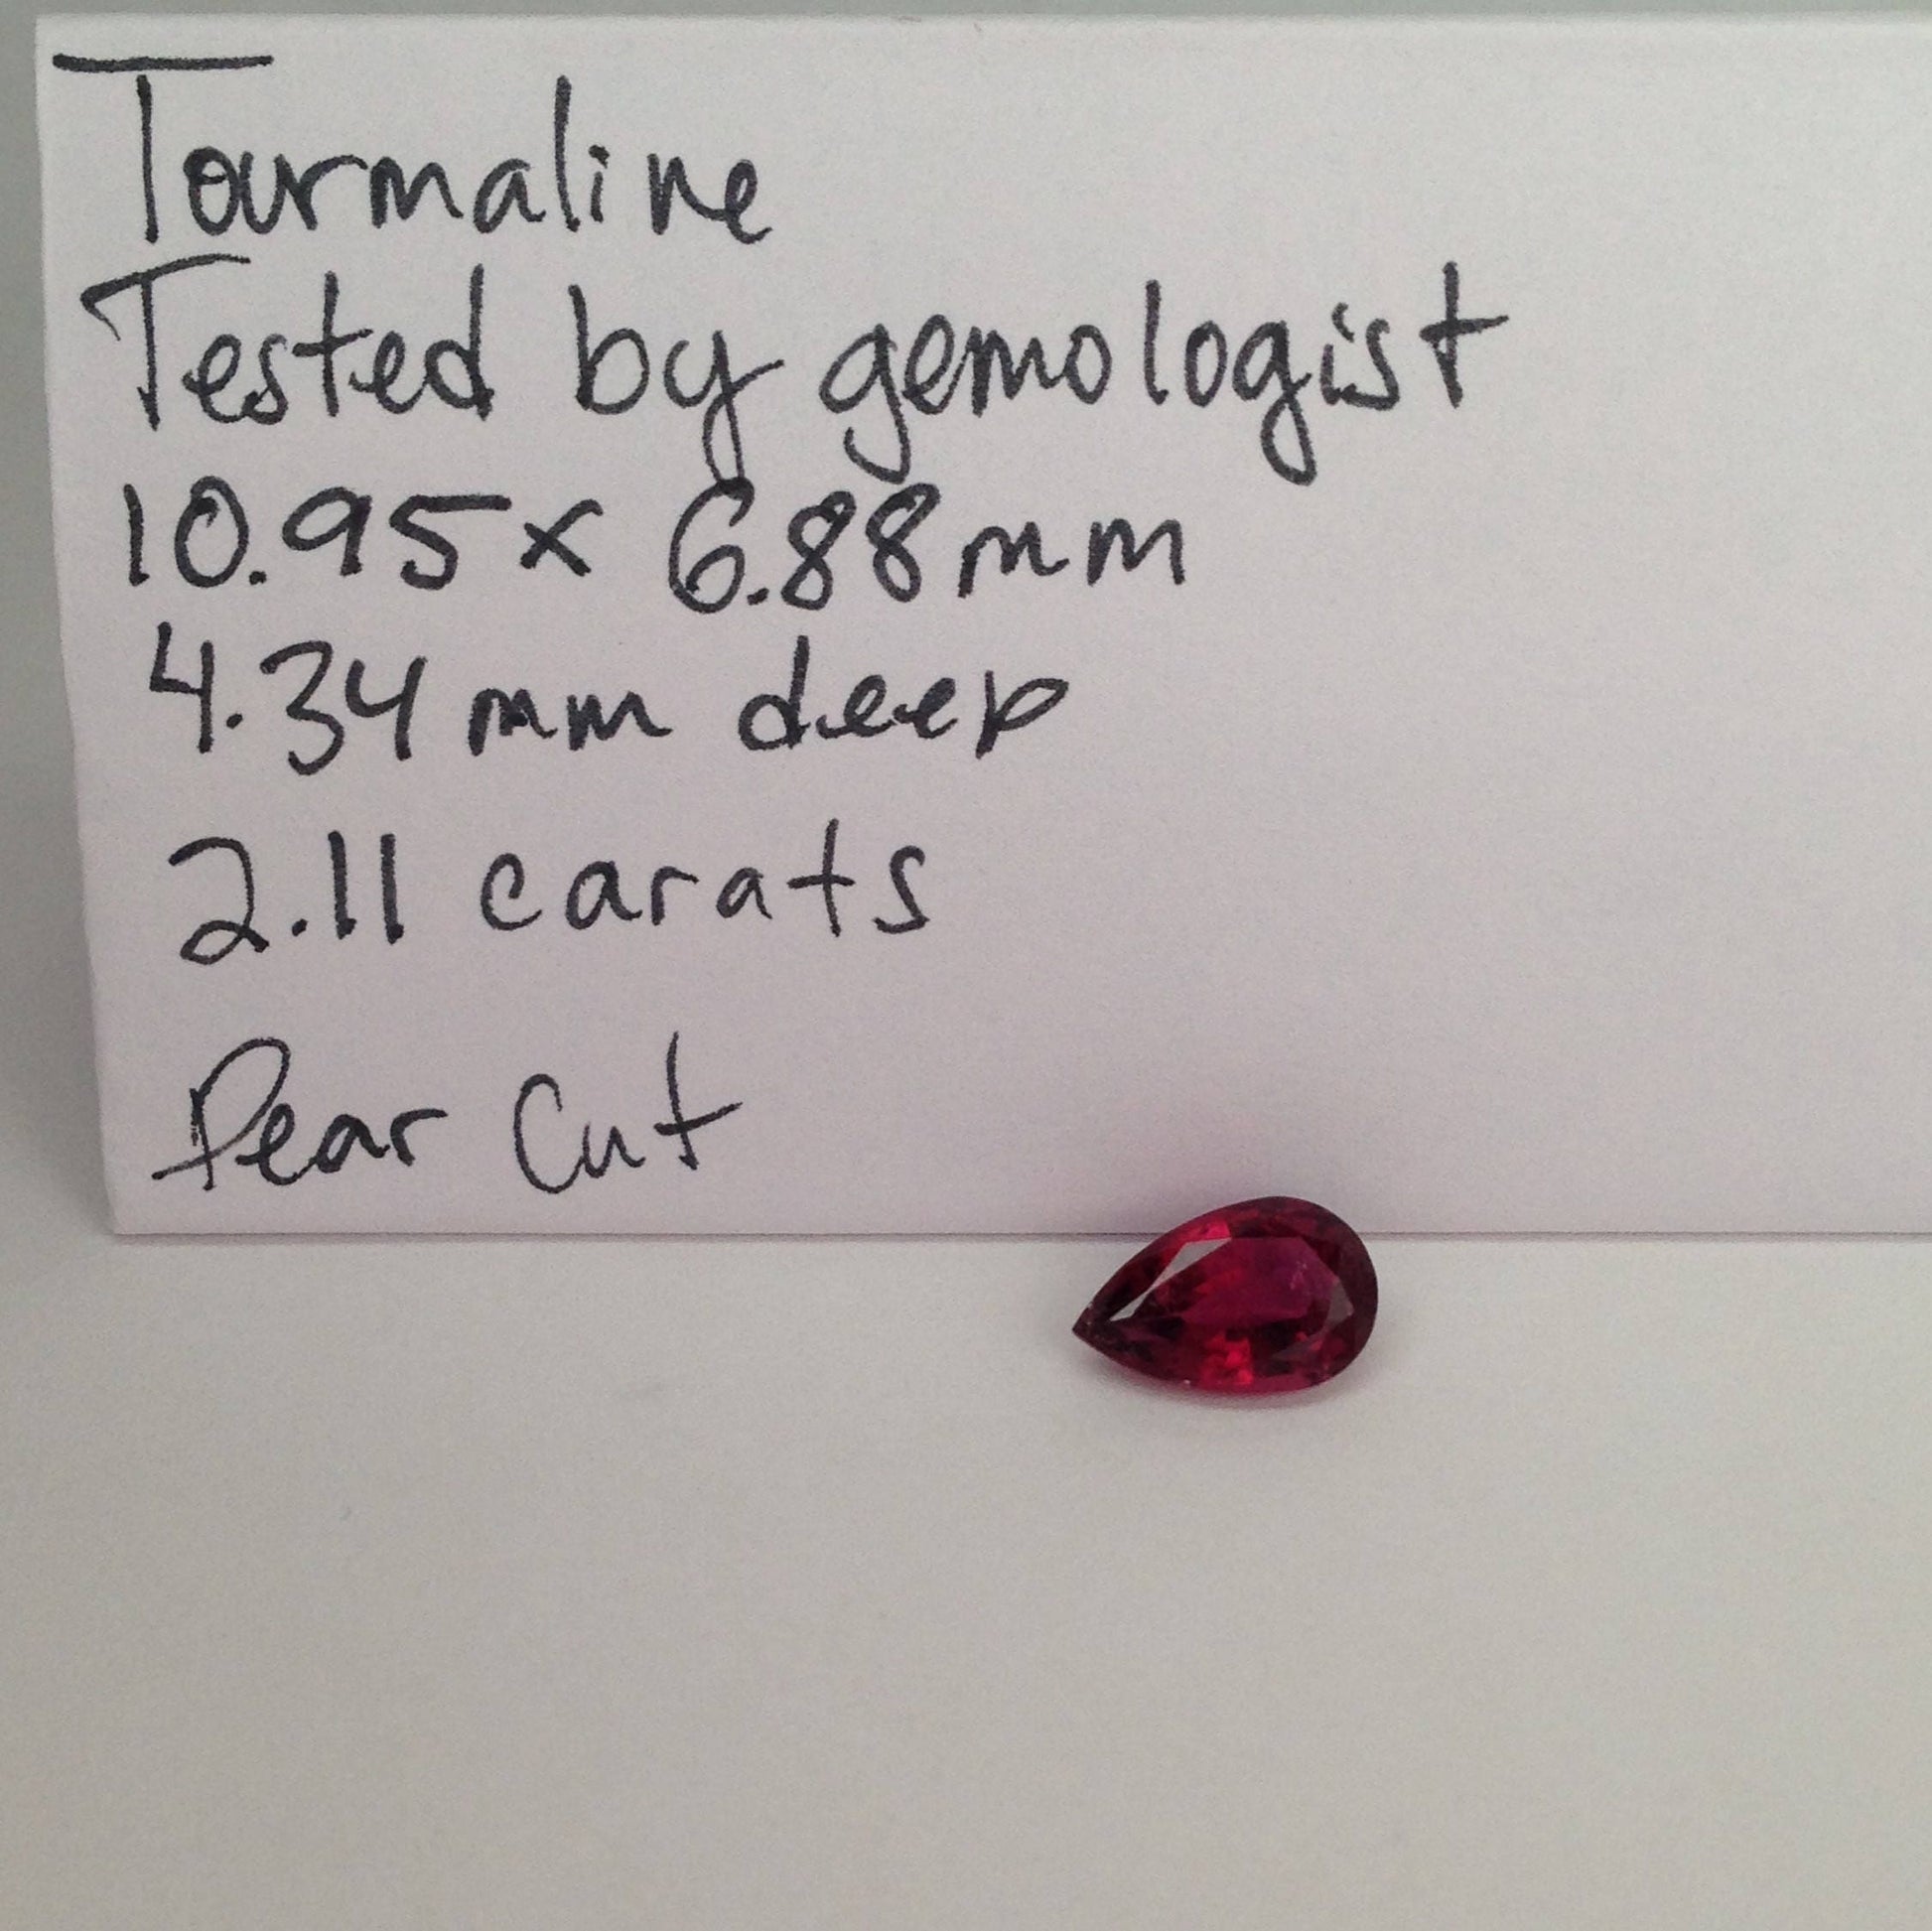 Tourmaline
Tested by gemologist
10.95 x 6.88 mm
4.34 mm deep
2.11 carats
Pear Cut